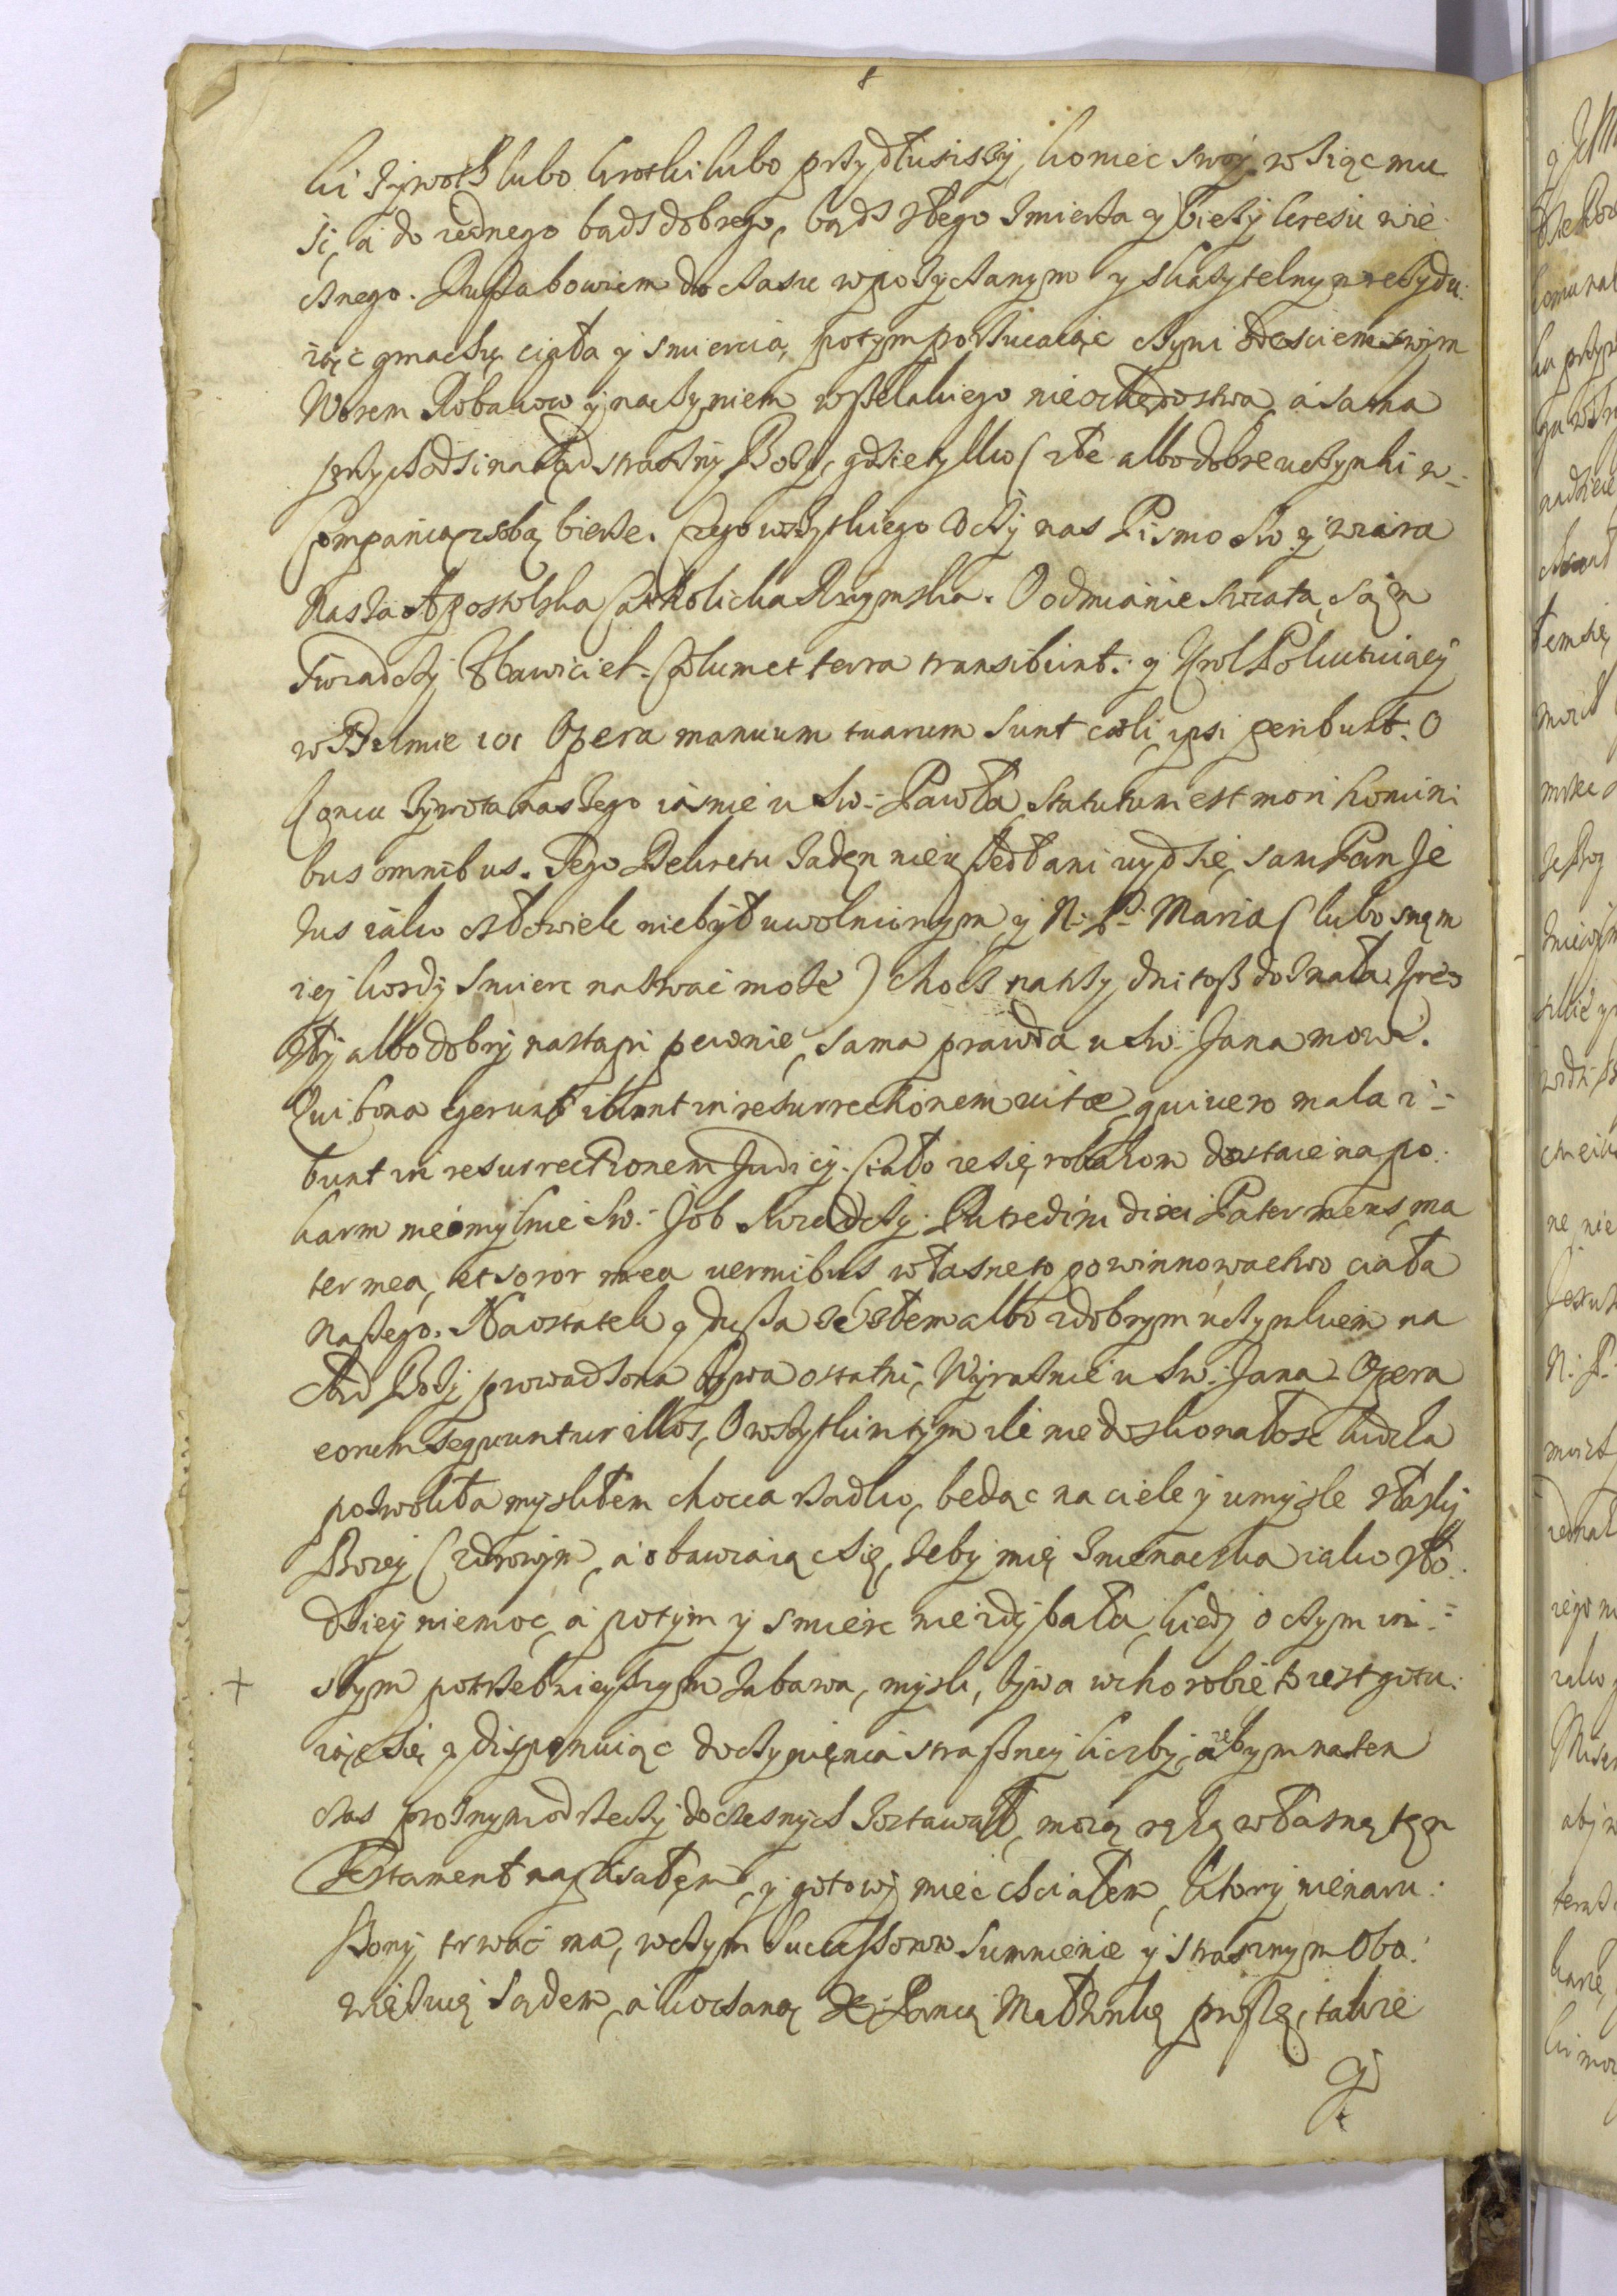 8
ki żywoth lubo krotki lubo przydłuższy, koniec swoy wziąc mu
si, a do iednego bądz dobrego, bądz złego zmierza y bieży kresu wie
cznego. Dusza bowiem do czasu w pożyczanym y skazytelnym rezydu:
iąc gmachu ciała y smiercią potym porzucaiąc czyni
Worem Robakow y naczyniem wszelakiego nieochędostwa, a sama
przychodzi na sąd straszny Boży, gdzie tylko złe albo dobre uczynki w=
Companią z sobą bierze. Czego wszytkiego Uczy nas Pismo Sw. y wiara
Nasza Apostolska Catholicka Rzymska. O odmianie swiata, sąm
Swiadczy Zbawiciel. Cœlum et terra transibunt. y Krol Pokutuiący
w Psalmie 101 Opera manuum tuarum sunt cœli, ipsi peribunt. O
Koncu żywota naszego iasnie u Sw. Pawła, Statutum est mori homini
bus omnibus. Tego Dekretu żaden nie uszedł ani uydzie, sam Pan Je
zus iako człowiek nie był uwolnionym, y N. P. Maria (lubo snąm
iey kozdy smierc nazwac może) choc na trzy dni toż doznała. Kres
zły albo dobry nastąpi pewnie, sama prawda u Sw. Jana mowi.
Qui bona egerunt ibunt in resurrectionem vitæ, qui vero mala i=
bunt in resurrectionem Judicij. Ciało ze się robakom dostaie na po:
karm nieomylnie Sw. Job swiadczy. Putredini dixi Pater meus, ma
ter mea, et soror mea vermibus własne to powinnowactwo ciała
Naszego. Naostatek y dusza ze złem albo z dobrym uczynkiem na
sąd Boży prowadzona bywa ostatni, Wyraznie u Sw. Jana. Opera
eorum sequuntur illos, O wszytkim tym ile niedoskonałosc ludzka
pozwoliła mysliłem chocia rzadko, będąc na ciele y umysle z łaski
Bozey zdrowym, a obawiaiąc się, żeby mię znienacka iako zło:
dziey niemoc, a potym y smierc nie zdybała, kiedy o czym in=
+ szym potrzebnieyszym zabawa, mysli, bywa w chorobie to iest gotu:
iąc się y disponuiąc do czynięnia straszney liczby, azebym na ten
czas proznym od rzeczy doczesnych zostawał, moią ręką własną tęn
Testament napisałęm, y gotowy miec chciałem, ktory nienaru:
szony trwac ma, w czym Successorow sumnienie y strasznym Obo:
wiązuię sądem, a kochaną Panią Małżonkę proszę, takze
y